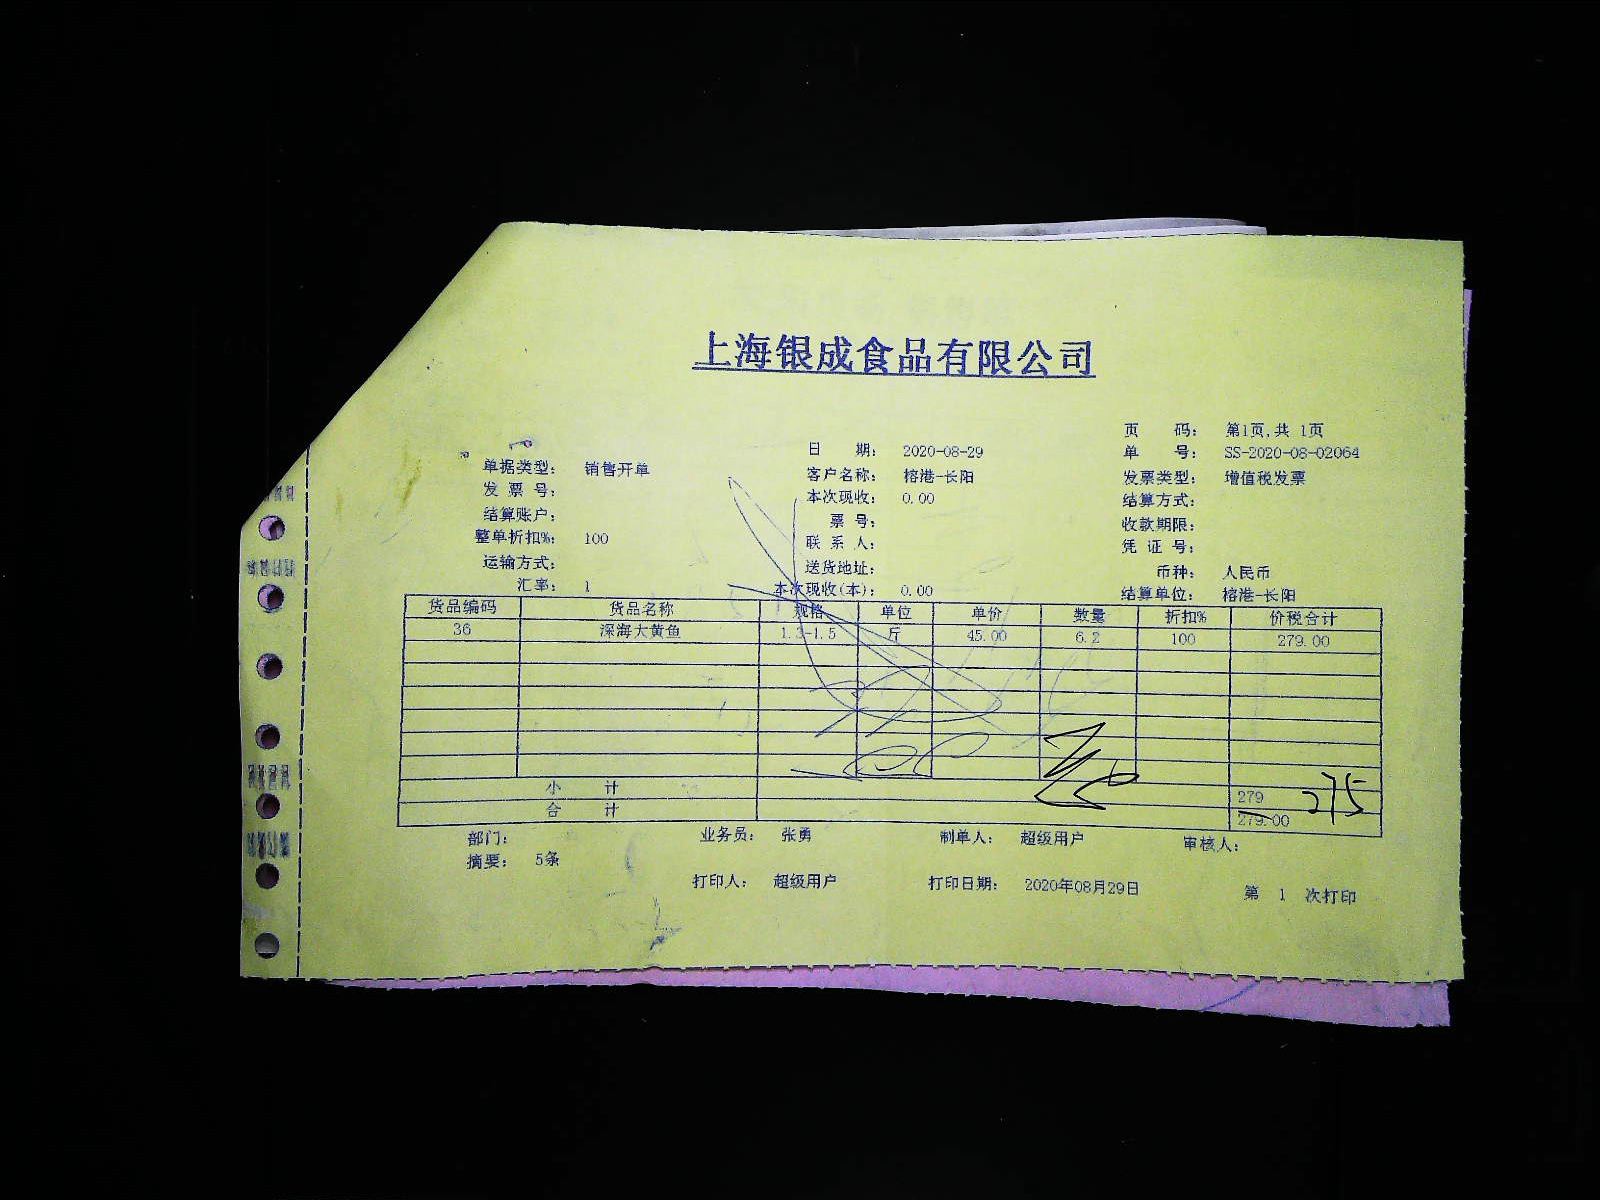 上海银成食品有限公司
页 码： 第1页,共 1页
日 期： 2020-08-29 单 号： SS-2020-08-02064
单据类型： 销售开单 客户名称： 榕港-长阳 发票类型： 增值税发票
发 票 号： 本次现收： 0.00 结算方式：
结算账户： 票 号： 收款期限：
整单折扣%： 100 联 系 人： 凭 证 号：
运输方式： 送货地址： 币种： 人民币
汇率： 1 本次现收(本)： 0.00 结算单位： 榕港-长阳
货品编码 货品名称 规格 单位 单价 数量 折扣% 价税合计
36 深海大黄鱼 1.3-1.5 斤 45.00 6.2 100 279.00
小 计 279 275
合 计 279.00
部门： 业务员： 张勇 制单人： 超级用户 审核人：
摘要： 5条
打印人： 超级用户 打印日期： 2020年08月29日 第 1 次打印